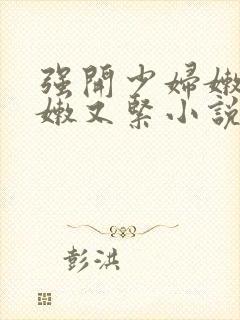 强開少婦嫩
嫩又緊小說
彭洪